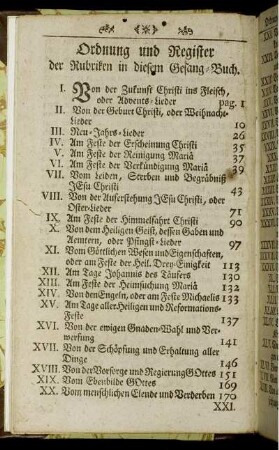 Ordnung und Register
der Rubriken in diesem Gesang-Buch.
I. Von der Zukunft Christi ins Fleisch,
oder Advents-Lieder pag. 1
II. Von der Geburt Christi, oder Weihnacht-
Lieder 10
III. Neu-Jahrs-Lieder 26
IV. Am Feste der Erscheinung Christi 35
V. Am Feste der Reinigung Mariä 37
VI. Am Feste der Verkündigung Mariä 39
VII. Vom Leiden, Sterben und Begräbniß
JEsu Christi 43
VIII. Von der Auferstehung JEsu Christi, oder
Oster-Lieder 71
IX. Am Feste der Himmelfahrt Christi 90
X. Von dem Heiligen Geist, dessen Gaben und
Aemtern, oder Pfingst-Lieder 97
XI. Vom Göttlichen Wesen und Eigenschaften,
oder am Feste der Heil. Drey-Einigkeit 113
XII. Am Tage Johannis des Täufers 130
XIII. Am Feste der Heimsuchung Mariä 132
XIV. Von den Engeln, oder am Feste Michaelis 133
XV. Am Tage aller Heiligen und Reformations-
Feste 137
XVI. Von der ewigen Gnaden-Wahl und Ver-
werfung 141
XVII. Von der Schöpfung und Erhaltung aller
Dinge 146
XVIII. Von der Vorsorge und Regierung GOttes 151
XIX. Vom Ebenbilde GOttes 169
XX. Vom menschlichen Elende und Verderben 170
XXI.